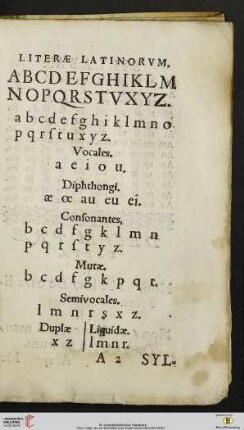 LITERÆ LATINORVM.
ABCDEFGHIKLM
NOPQRSTVXYZ.
a b c d e f g h i k l m n o
p q r ſ t u x y z.
Vocales.
a e i o u.
Diphthongi.
æ œ au eu ei.
Conſonantes,
b c d f g k l m n
p q r ſ t y z.
Mutæ.
b c d f g k p q t.
Semivocales.
l m n r s x z.
Duplæ Liquidæ.
x z l m n r.
A 2 SYL-